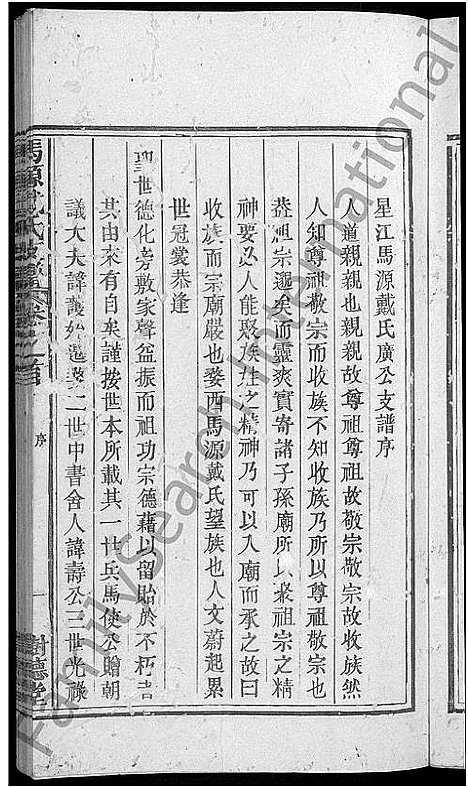 星江馬源戴氏廣公支譜序
人道親親也親親故尊祖尊祖故敬宗敬宗故收族然
人知尊祖敬宗而收族不知收族乃所以尊祖敬宗也
葢祖宗邈矣而靈爽實寄諸子孫廟所以聚祖宗之精
神要必人能聚族姓之精神乃可以入廟而承之故曰
收族而宗廟嚴也婺西馬源戴氏望族也人文蔚起累
世冠裳恭逢
聖世德化旁敷家聲益振而祖功宗德藉以留貽於不朽者
其由來有自矣謹按世本所載其一世兵馬使公贈朝
議大夫諱護始遷婺二世中書舍人諱壽公三世光祿
馬源戴氏
序
一
樹德堂
FamilySearch International